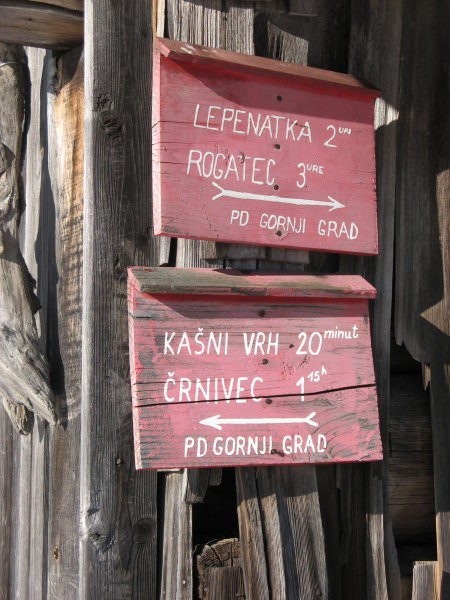 LEPENATKA 2 URI
ROGATEC 3 URE
PD GORNJI GRAD
KAŠNI VRH 20 minut
ČRNIVEC 1 15h
PD GORNJI GRAD